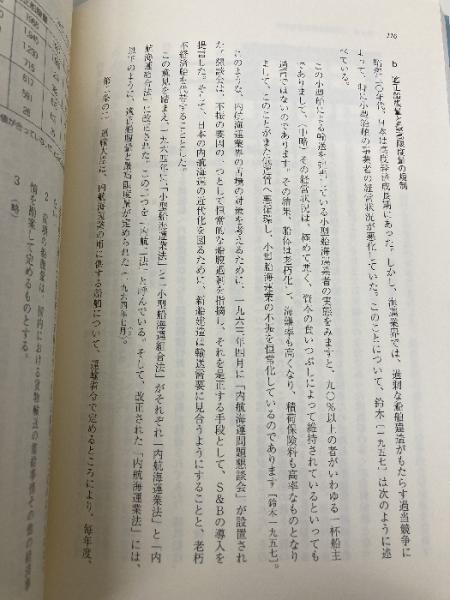 b 適正船腹量と最高限度量の規制
昭和三〇年代、日本は高度経済成長期にあった。しかし、海運業界では、過剰な船舶建造がもたらす過当競争に
よって、特に小型船舶の事業者の経営状況が悪化していた。このことについて、鈴木［一九五七］は次のように述
べている。
この小型船による輸送を担っている小型船海運業者の実態をみますと、九〇％以上の者がいわゆる一杯船主
でありまして、（中略）その経営状況は、極めて悪く、資本の食いつぶしによって維持されているといっても
過言ではないのであります。その結果、船体は老朽化し、海難率も高くなり、積荷保険料も高率なものとなり
まして、このことがまた低運賃へ悪循環し、小型船海運業の不振を恒常化しているのであります［鈴木一九五七］。
このような、内航海運業界の苦境の対策を考えるために、一九六三年四月に「内航海運問題懇談会」が設置され
た。懇談会は、不振の要因の一つとして恒常的な船腹過剰を指摘し、それを是正する手段として、S&Bの導入を
提言した。そして、日本の内航海運の近代化を図るために、新船建造は輸送需要に見合うようにすることと、老朽
不経済船を代替することにした。
この意見を踏まえ、一九六四年に「小型船海運業法」と「小型船海運組合法」がそれぞれ「内航海運業法」と「内
航海運組合法」に改正された。この二つを「内航二法」と呼んでいる。そして、改正された「内航海運業法」には、
以下のように、適正船腹量と最高限度量が定められた（一九六四年七月）。
第二条の二 運輸大臣は、内航海運業の用に供する船舶について、運輸省令で定めるところにより、毎年度、
2 前項の
船腹量は、国内における貨物輸送の需給事情その他の経済事
情を勘案して定めるものとする。
3 （略）
126